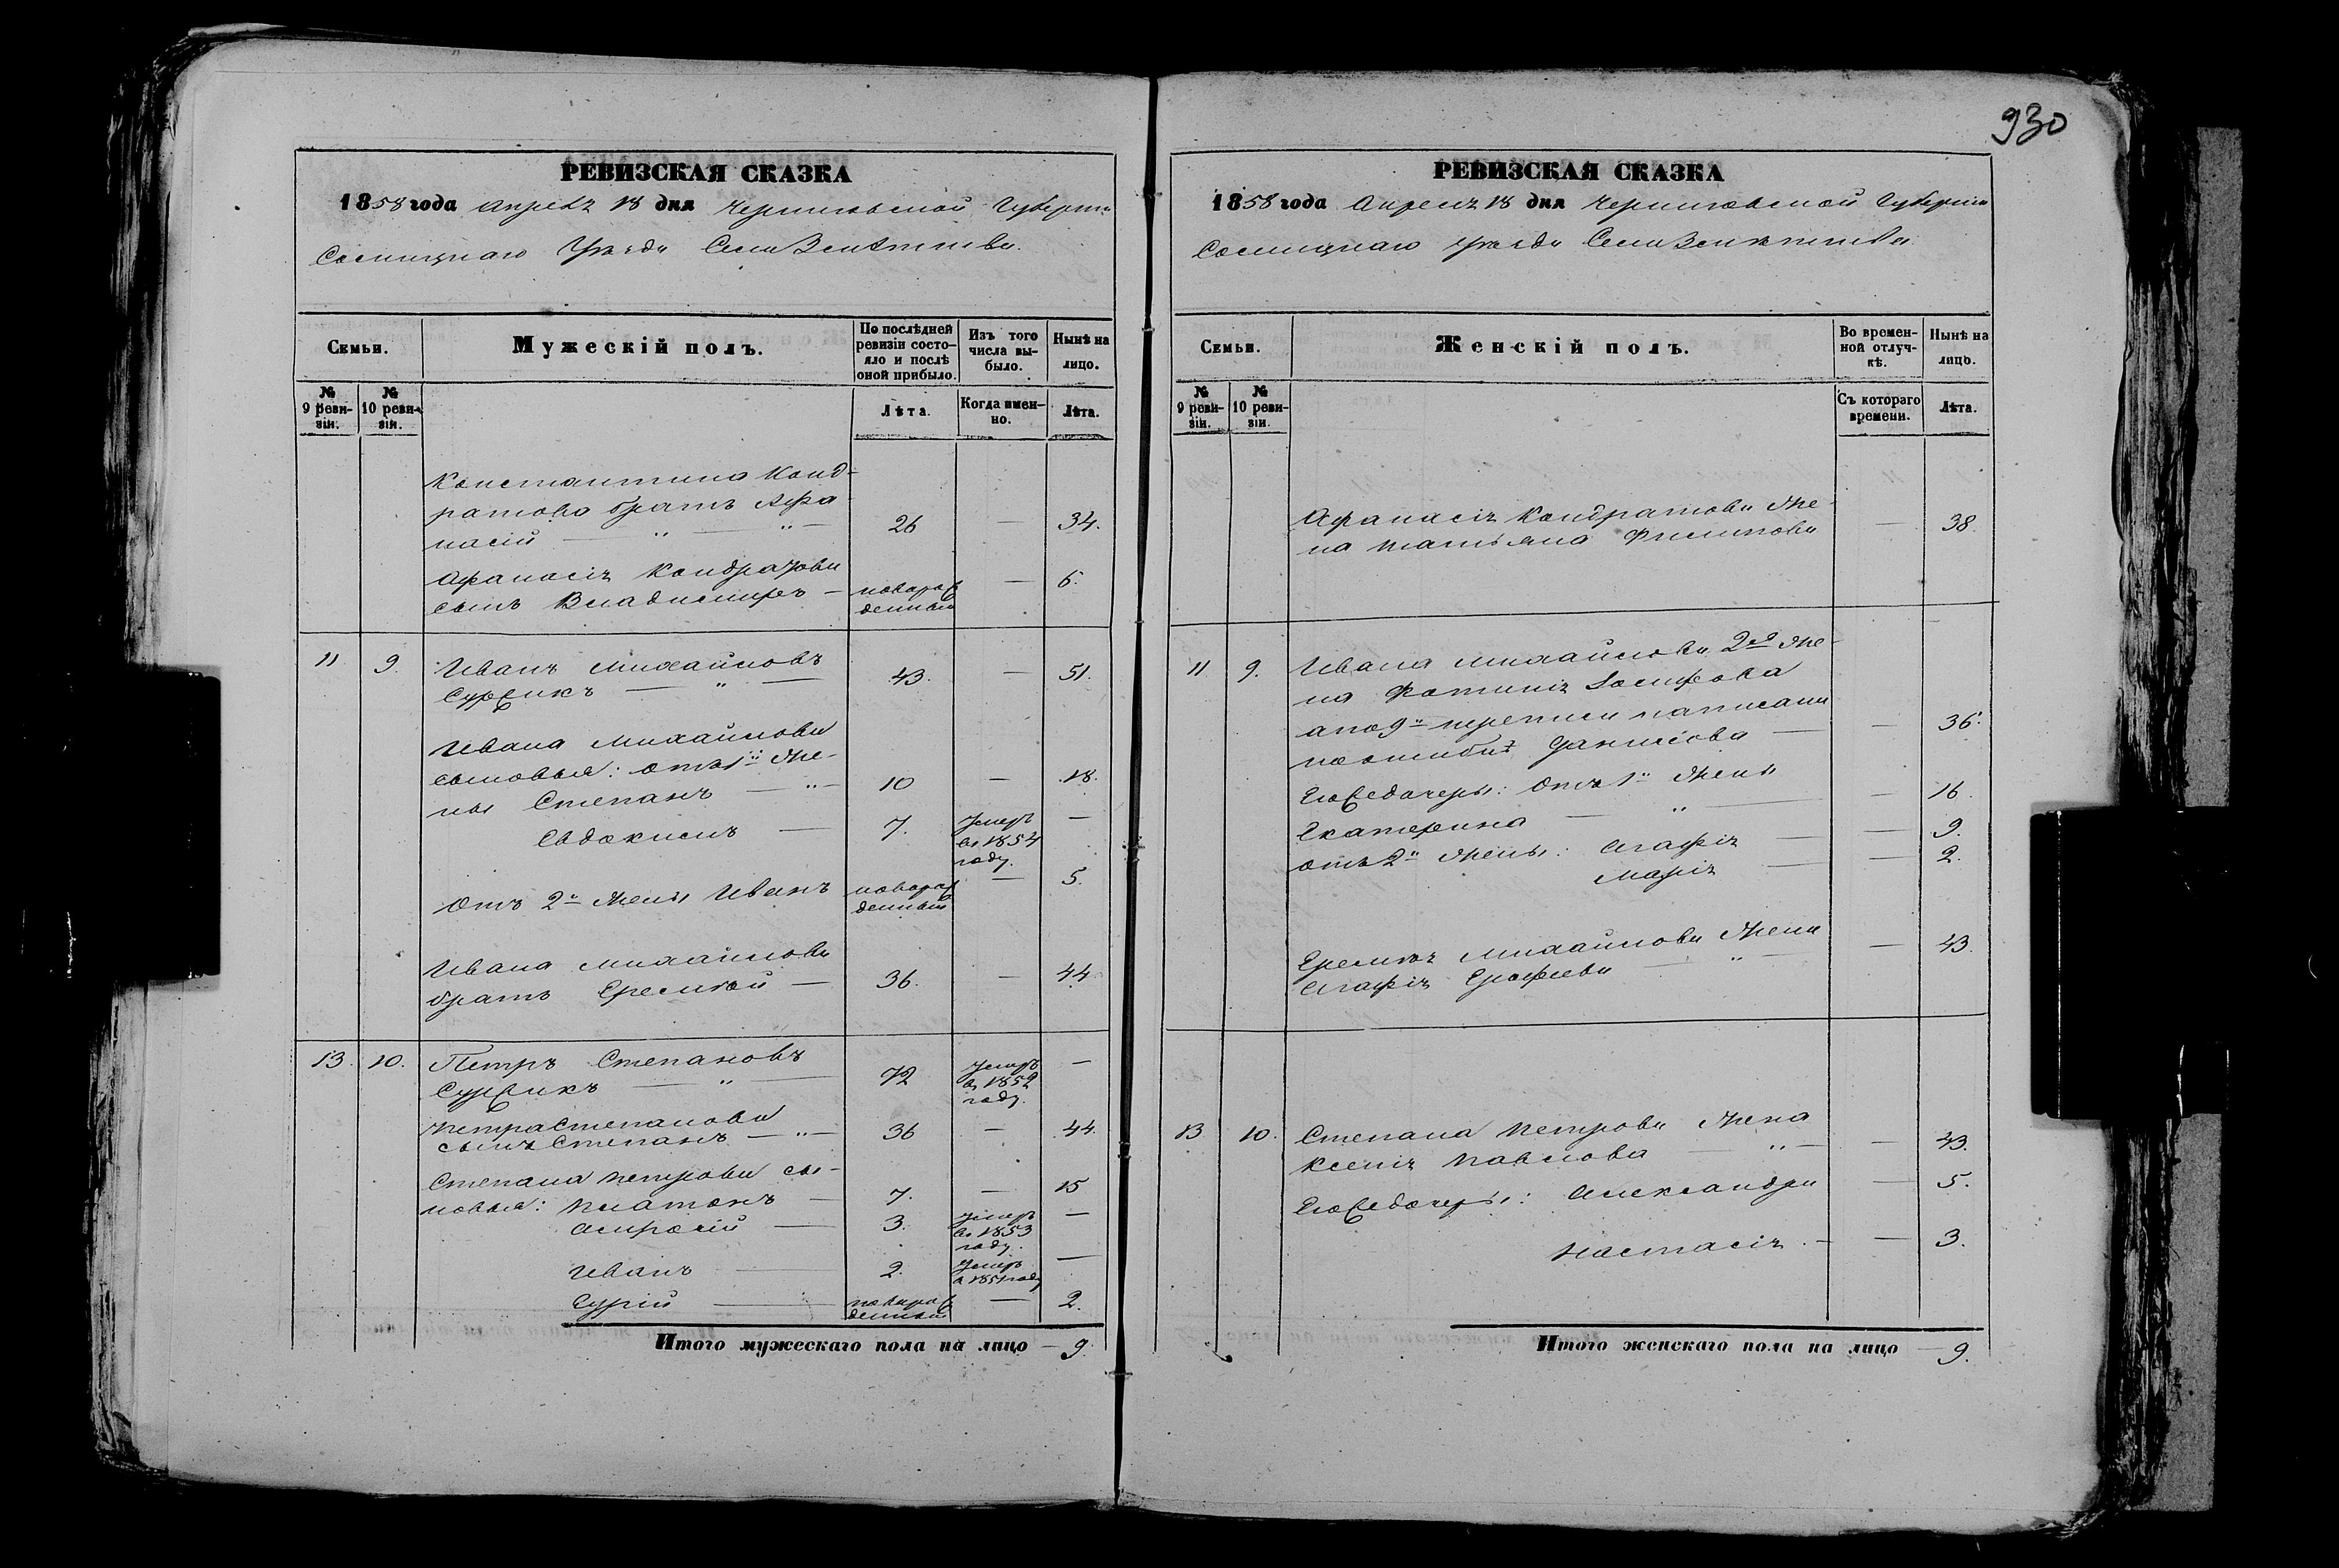 930
РЕВИЗСКАЯ СКАЗКА
1858 года Апреля 18 дня Черниговской Губернии
Сосницкаго Уезда Села
Семьи.
Мужескій полъ.
По послѣдней ревизіи состояло и послѣ оной прибыло.
Изъ того числа выбыло.
Нынѣ на лицо.
№ 9 ревизіи.
№ 10 ревизіи.
Лѣта.
Когда именно.
Лѣта.
Константина Конд-
ратова братъ Афа
насій — " — " — 26 — 34.
Афанасія Кондратова
сынъ Владимиръ — новорож
денный — 6.
11 9. Иванъ Михайловъ
Сурикъ — " — 43. — 51.
Ивана Михайлова
сыновья: отъ 1й же-
ны Степанъ — " — 10 — 18.
Евдокимъ — 7. Умеръ
въ 1854
году. —
Отъ 2й жены Иванъ новорож
денный — 5.
Ивана Михайлова
братъ Еремѣй — 36. — 44.
13. 10. Петръ Степановъ
Сурикъ — " — 72 Умеръ
въ 1852
году. —
Петра Степанова
сынъ Степанъ — " — 36 — 44.
Степана Петрова сы-
новья: Платонъ — 7. — 15
Амросій — 3. Умеръ
въ 1853
году. —
Иванъ — 2. Умеръ
в 1851 году —
— новорож
денный — 2.
Итого мужескаго пола на лицо — 9.
РЕВИЗСКАЯ СКАЗКА
1858 года Апреля 18 дня Черниговской Губернии
Сосницкаго Уезда Села
Семьи.
Женскій полъ.
Во временной отлучкѣ.
Нынѣ на лицо.
№ 9 ревизіи.
№ 10 ревизіи.
Съ котораго времени.
Лѣта.
Афанасія Кондратова Же-
на Татьяна Филипова — 38.
11 9. Ивана Михайлова 2я же-
на Фотинія Іосифова
а по 9й переписи написана
по ошибкѣ Данилова — — 36.
Его же дочери: Отъ 1й жены
Екатерина — " — — 16.
отъ 2й жены: Агафія — — 9.
Марія — — 2.
Еремѣя Михайлова Жена
Агафія Ерофеева — " — — 43.
13 10. Степана Петрова Жена
Ксенія Павлова — " — — 43.
Его же дочери: Александра — 5.
Настасія — — 3.
Итого женскаго пола на лицо — 9.